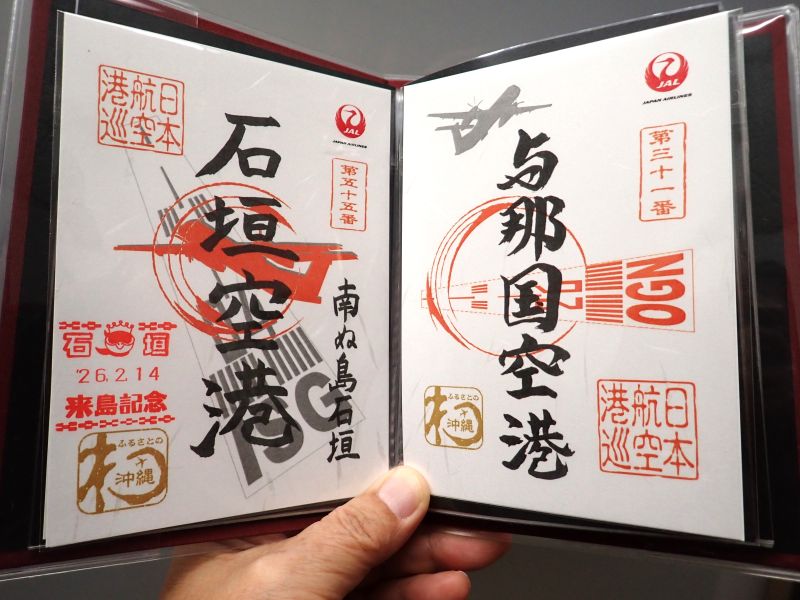 日本
航空
港巡
JAL
JAPAN AIRLINES
第五十五番
石垣空港
南ぬ島石垣
ISG
石垣
'26.2.14
来島記念
ふるさとの
沖縄
JAL
JAPAN AIRLINES
第三十一番
与那国空港
OGN
ふるさとの
沖縄
日本
航空
港巡